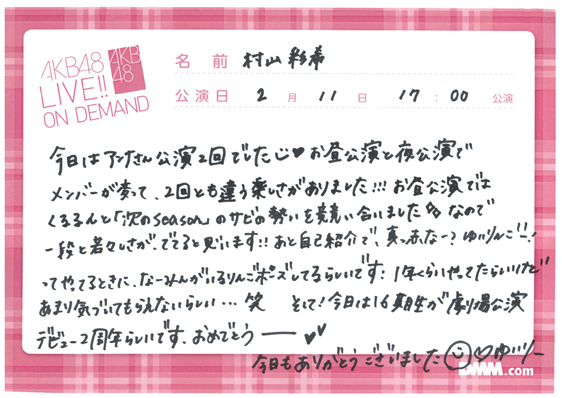 AKB48
LIVE!!
ON DEMAND
AKB
48
名前 村山彩希
公演日 2月11日 17:00 公演
今日はアンナさん公演2回でした♡お昼公演と夜公演で
メンバーが変って、2回とも違う楽しさがありました!!!お昼公演では
くるるんと「次のSeason」のサビの勢いを競い合いましたなので
一段と若々しさが、でてると思います!!あと自己紹介で、真っ赤なー?ゆいりんご!!
ってやてるときに、なーみんがいるりんごポーズしてるらしいです:1年くらいやってたらしいけど
あまり気づいてもらえないらしい…笑 そして!今日は16期生が劇場公演
デビュー2周年らしいです。おめでとう――♥♥
今日もありがとうございました♡ゆいりー
DMM.com